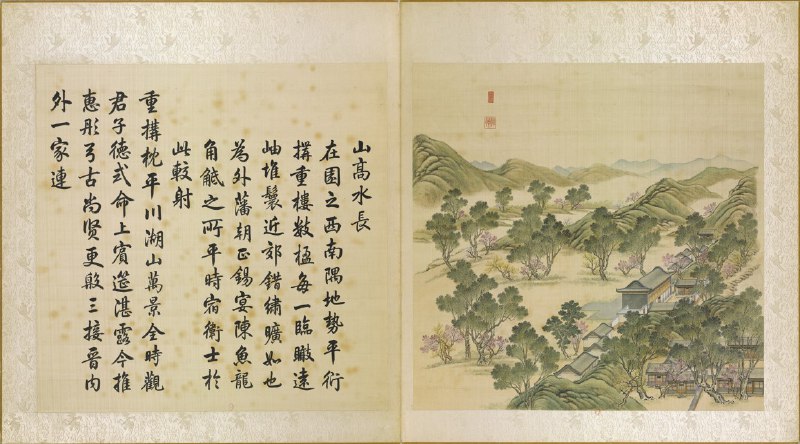 山高水長
在園之西南隅地勢平衍
搆重樓數楹每一臨瞰遠
岫堆鬟近郊錯繡曠如也
為外藩朝正錫宴陳魚龍
角觝之所平時宿衛士於
此較射
重搆枕平川湖山萬景全時觀
君子德式命上賓筵湛露今推
惠彤弓古尚賢更殷三接晉内
外一家連